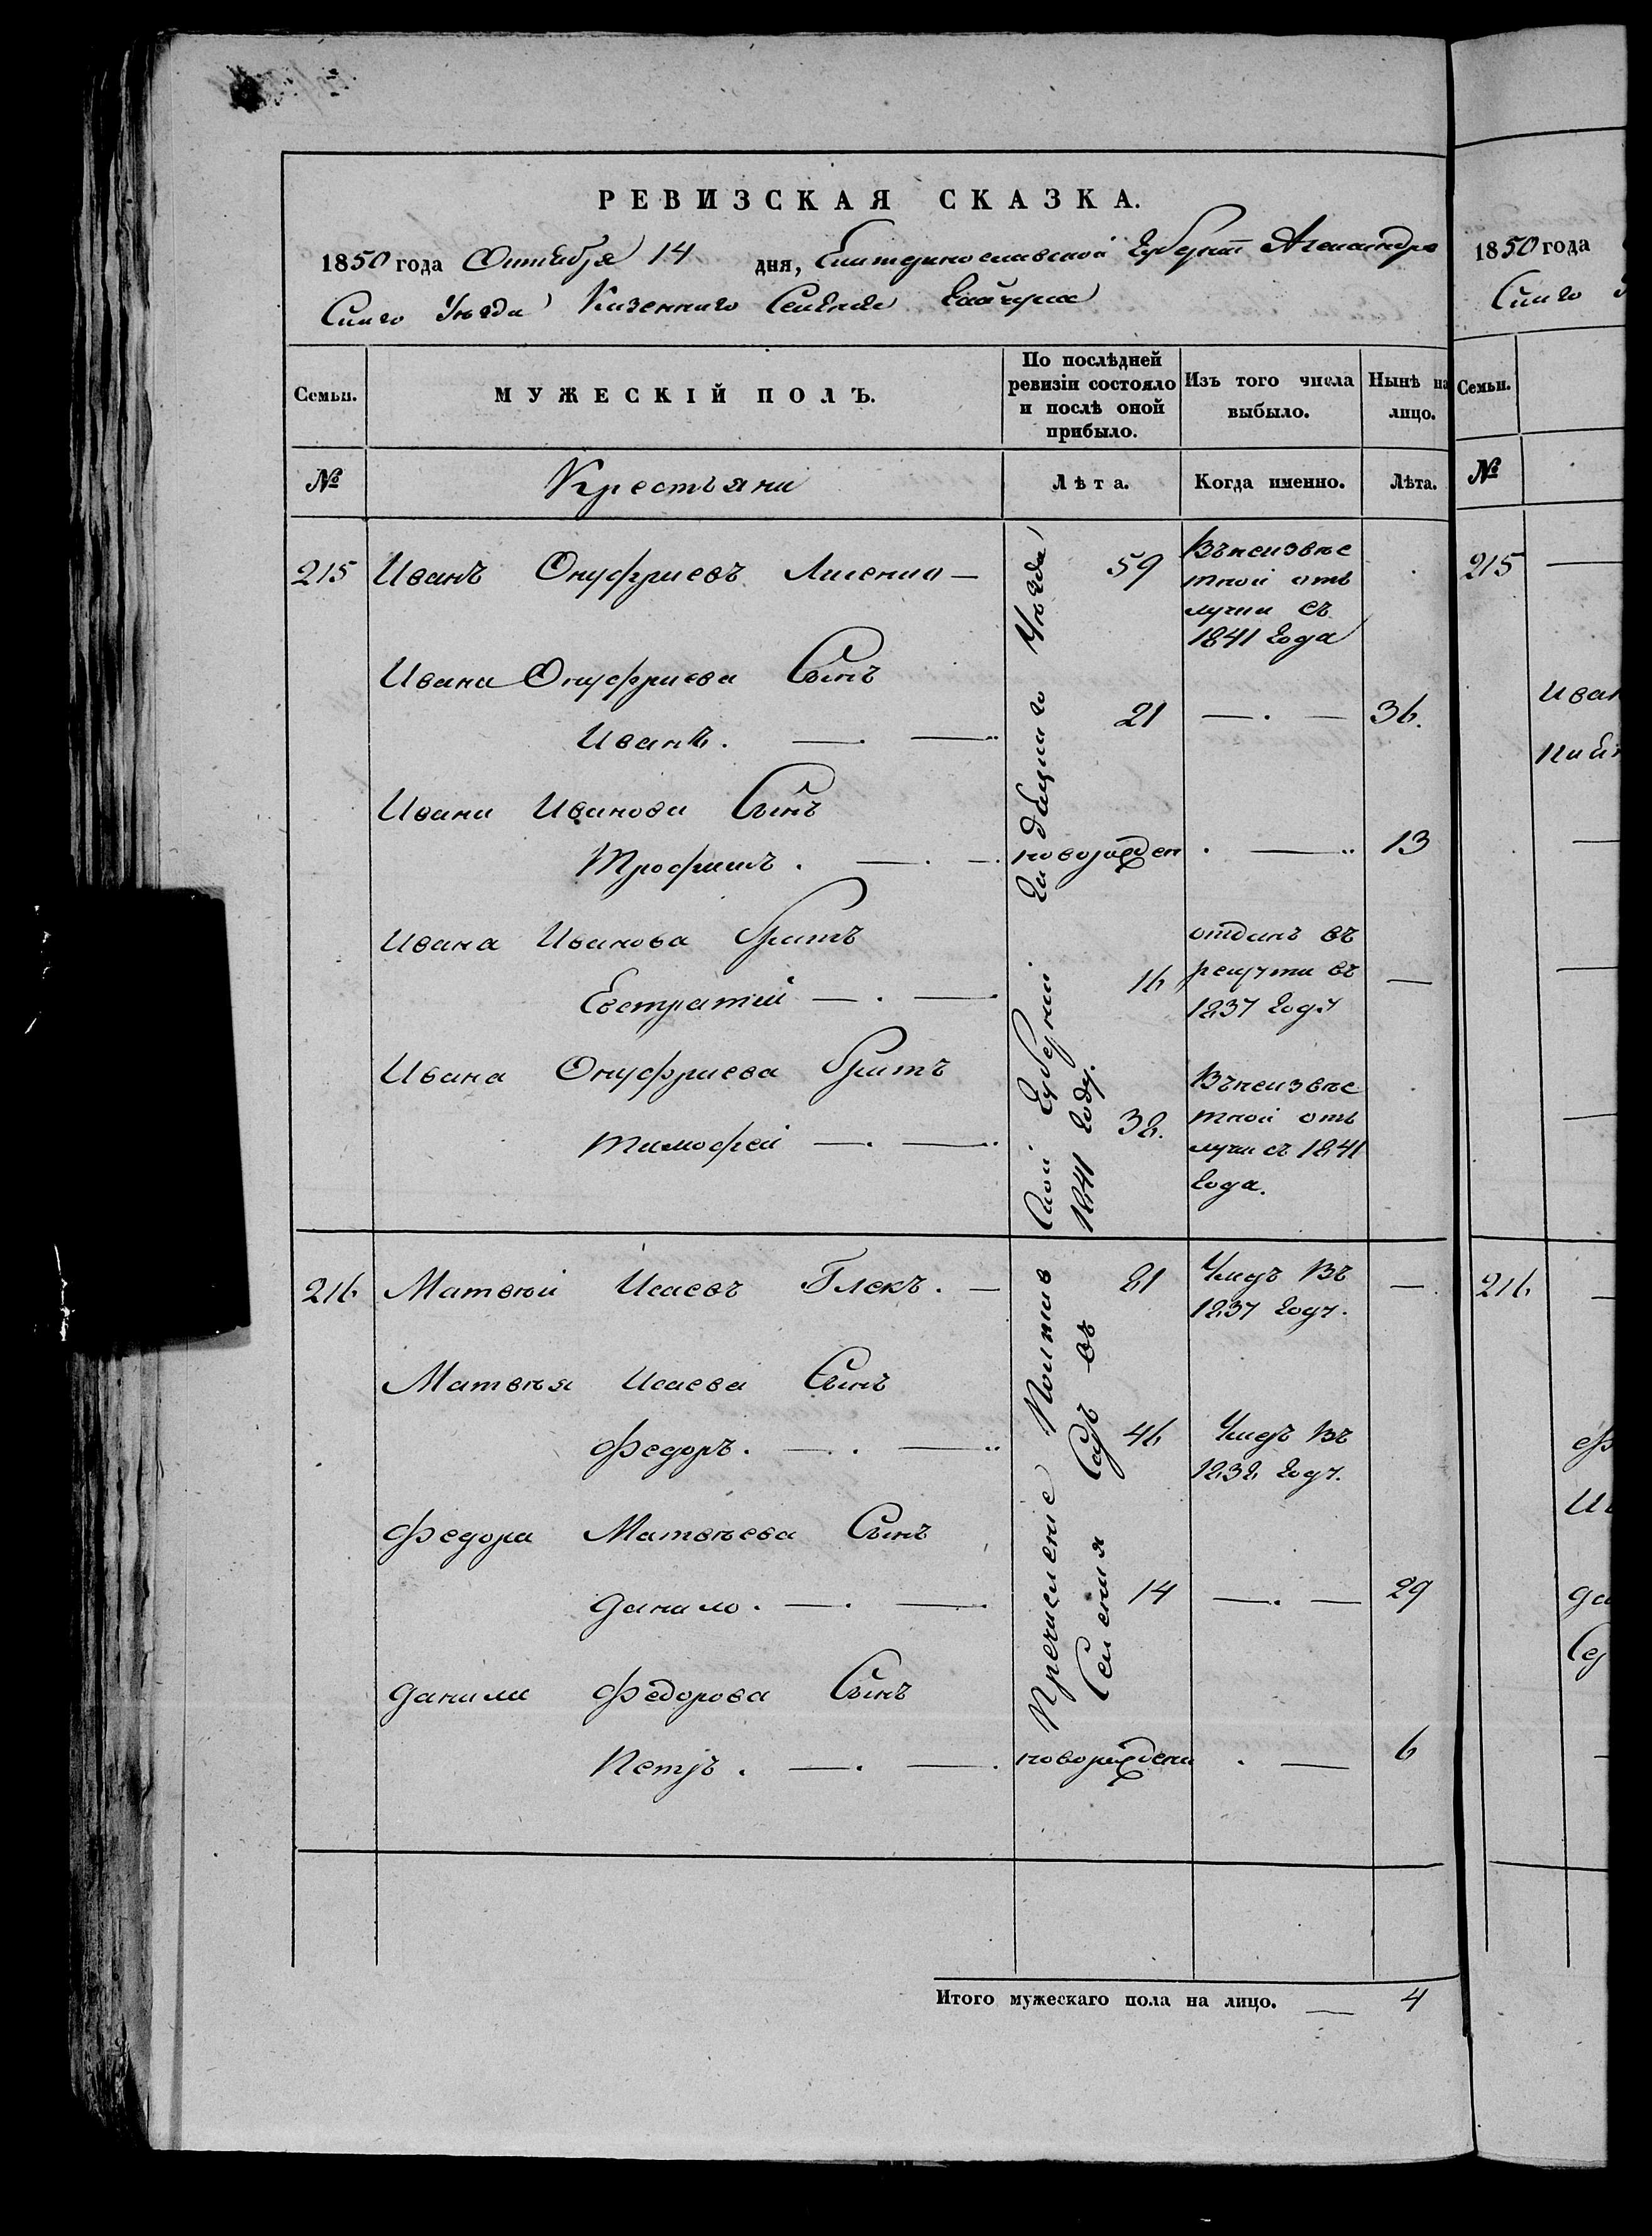 РЕВИЗСКАЯ СКАЗКА.
1850 года Октября 14 дня, Екатеринославской Губернии Александро
Скаго Уезда Казеннаго Селения Гайчула
Семьи.
МУЖЕСКІЙ ПОЛЪ.
По послѣдней
ревизіи состояло
и послѣ оной
прибыло.
Изъ того числа
выбыло.
Нынѣ на
лицо.
№
Крестьяни
Лѣта.
Когда именно.
Лѣта.
215 Иванъ Онуфриевъ Лисенко — 59
Въ неизвѣс
тной отъ
лучки съ
1841 года
Ивана Онуфриева Сынъ
Иванъ. — . — 21 — . — 36.
Ивана Иванова Сынъ
Трофимъ . — . — . новорожден . — 13
Ивана Иванова братъ
Евстратий — . — 16
отданъ въ
рекруты въ
1837 году
—
Ивана Онуфриева братъ
Тимофей — . — 38.
Въ неизвѣс
тной отъ
лучки съ 1841
года.
216 Матвѣй Исаевъ Глекъ . — 81
Умеръ Въ
1837 году.
—
Матвѣя Исаева Сынъ
Федоръ. — . — 46
Умеръ Въ
1838 году.
Федора Матвѣева Сынъ
Данило . — . — 14 — . — 29
Данили Федорова Сынъ
Петръ . — . — . новорожденн . — 6
Пречисление Полтав
Ской Губернии Гадяцкаго Уезда
Селения Саръ въ
1841 году.
Итого мужескаго пола на лицо. — 4
1850 года
Скаго
Семьи.
№
215
Иван
216
Фе
Да